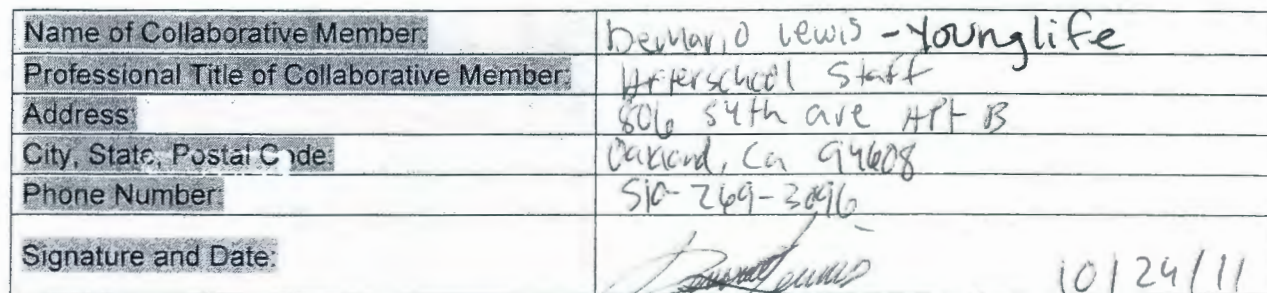 Name of Collaborative Member: Demario Lewis - Younglife
Professional Title of Collaborative Member: Afterschool Staff
Address: 806 54th ave APt B
City, State, Postal Code: Oakland, Ca 94608
Phone Number: 510-269-3096
Signature and Date: 10/24/11